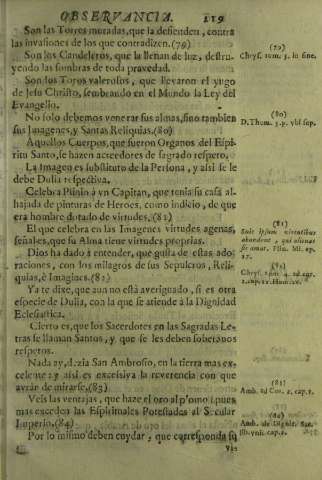 OBSERVANCIA. 119
Son las Torres muradas, que la defienden, contra
las invasiones de los que contradizen. (79)
Son los Candeleros, que la llenan de luz, destru-
yendo las sombras de toda pravedad.
Son los Toros valerosos, que llevaron el yugo
de Jesu Christo, sembrando en el Mundo la Ley del
Evangelio.
No solo debemos venerar sus almas, sino tambien
sus Imagenes, y Santas Reliquias. (80)
Aquellos Cuerpos, que fueron Organos del Espi-
ritu Santo, se hazen acreedores de sagrado respeto.
La Imagen es substituto de la Persona, y assi se le
debe Dulia respectiva.
Celebra Plinio à vn Capitan, que tenia su casa al-
hajada de pinturas de Heroes, como indicio, de que
era hombre dotado de virtudes. (81)
El que celebra en las Imagenes virtudes agenas,
señales, que su Alma tiene virtudes proprias.
Dios ha dado à entender, que gusta de estas ado-
raciones, con los milagros de sus Sepulcros, Reli-
quias, è Imagines. (82)
Ya te dixe, que aun no està averiguado, si es otra
especie de Dulia, con la que se atiende à la Dignidad
Eclesiastica.
Cierto es, que los Sacerdotes en las Sagradas Le-
tras se llaman Santos, y que se les deben soberanos
respetos.
Nada ay, dezia San Ambrosio, en la tierra mas ex-
celente; y assi es excessiva la reverencia con que
avràn de mirarse. (83)
Veis las ventajas, que haze el oro al plomo; pues
mas exceden las Espirituales Potestades al Secular
Imperio. (84)
Por lo mismo deben cuydar, que corresponda su
(79)
Chrys. tom. 3. in fine.
(80)
D. Thom. 3. p. vbi sup.
(81)
(82)
(83)
Amb. ad Cor. 2. cap. 2.
(84)
Amb. de Dignit. Sac.